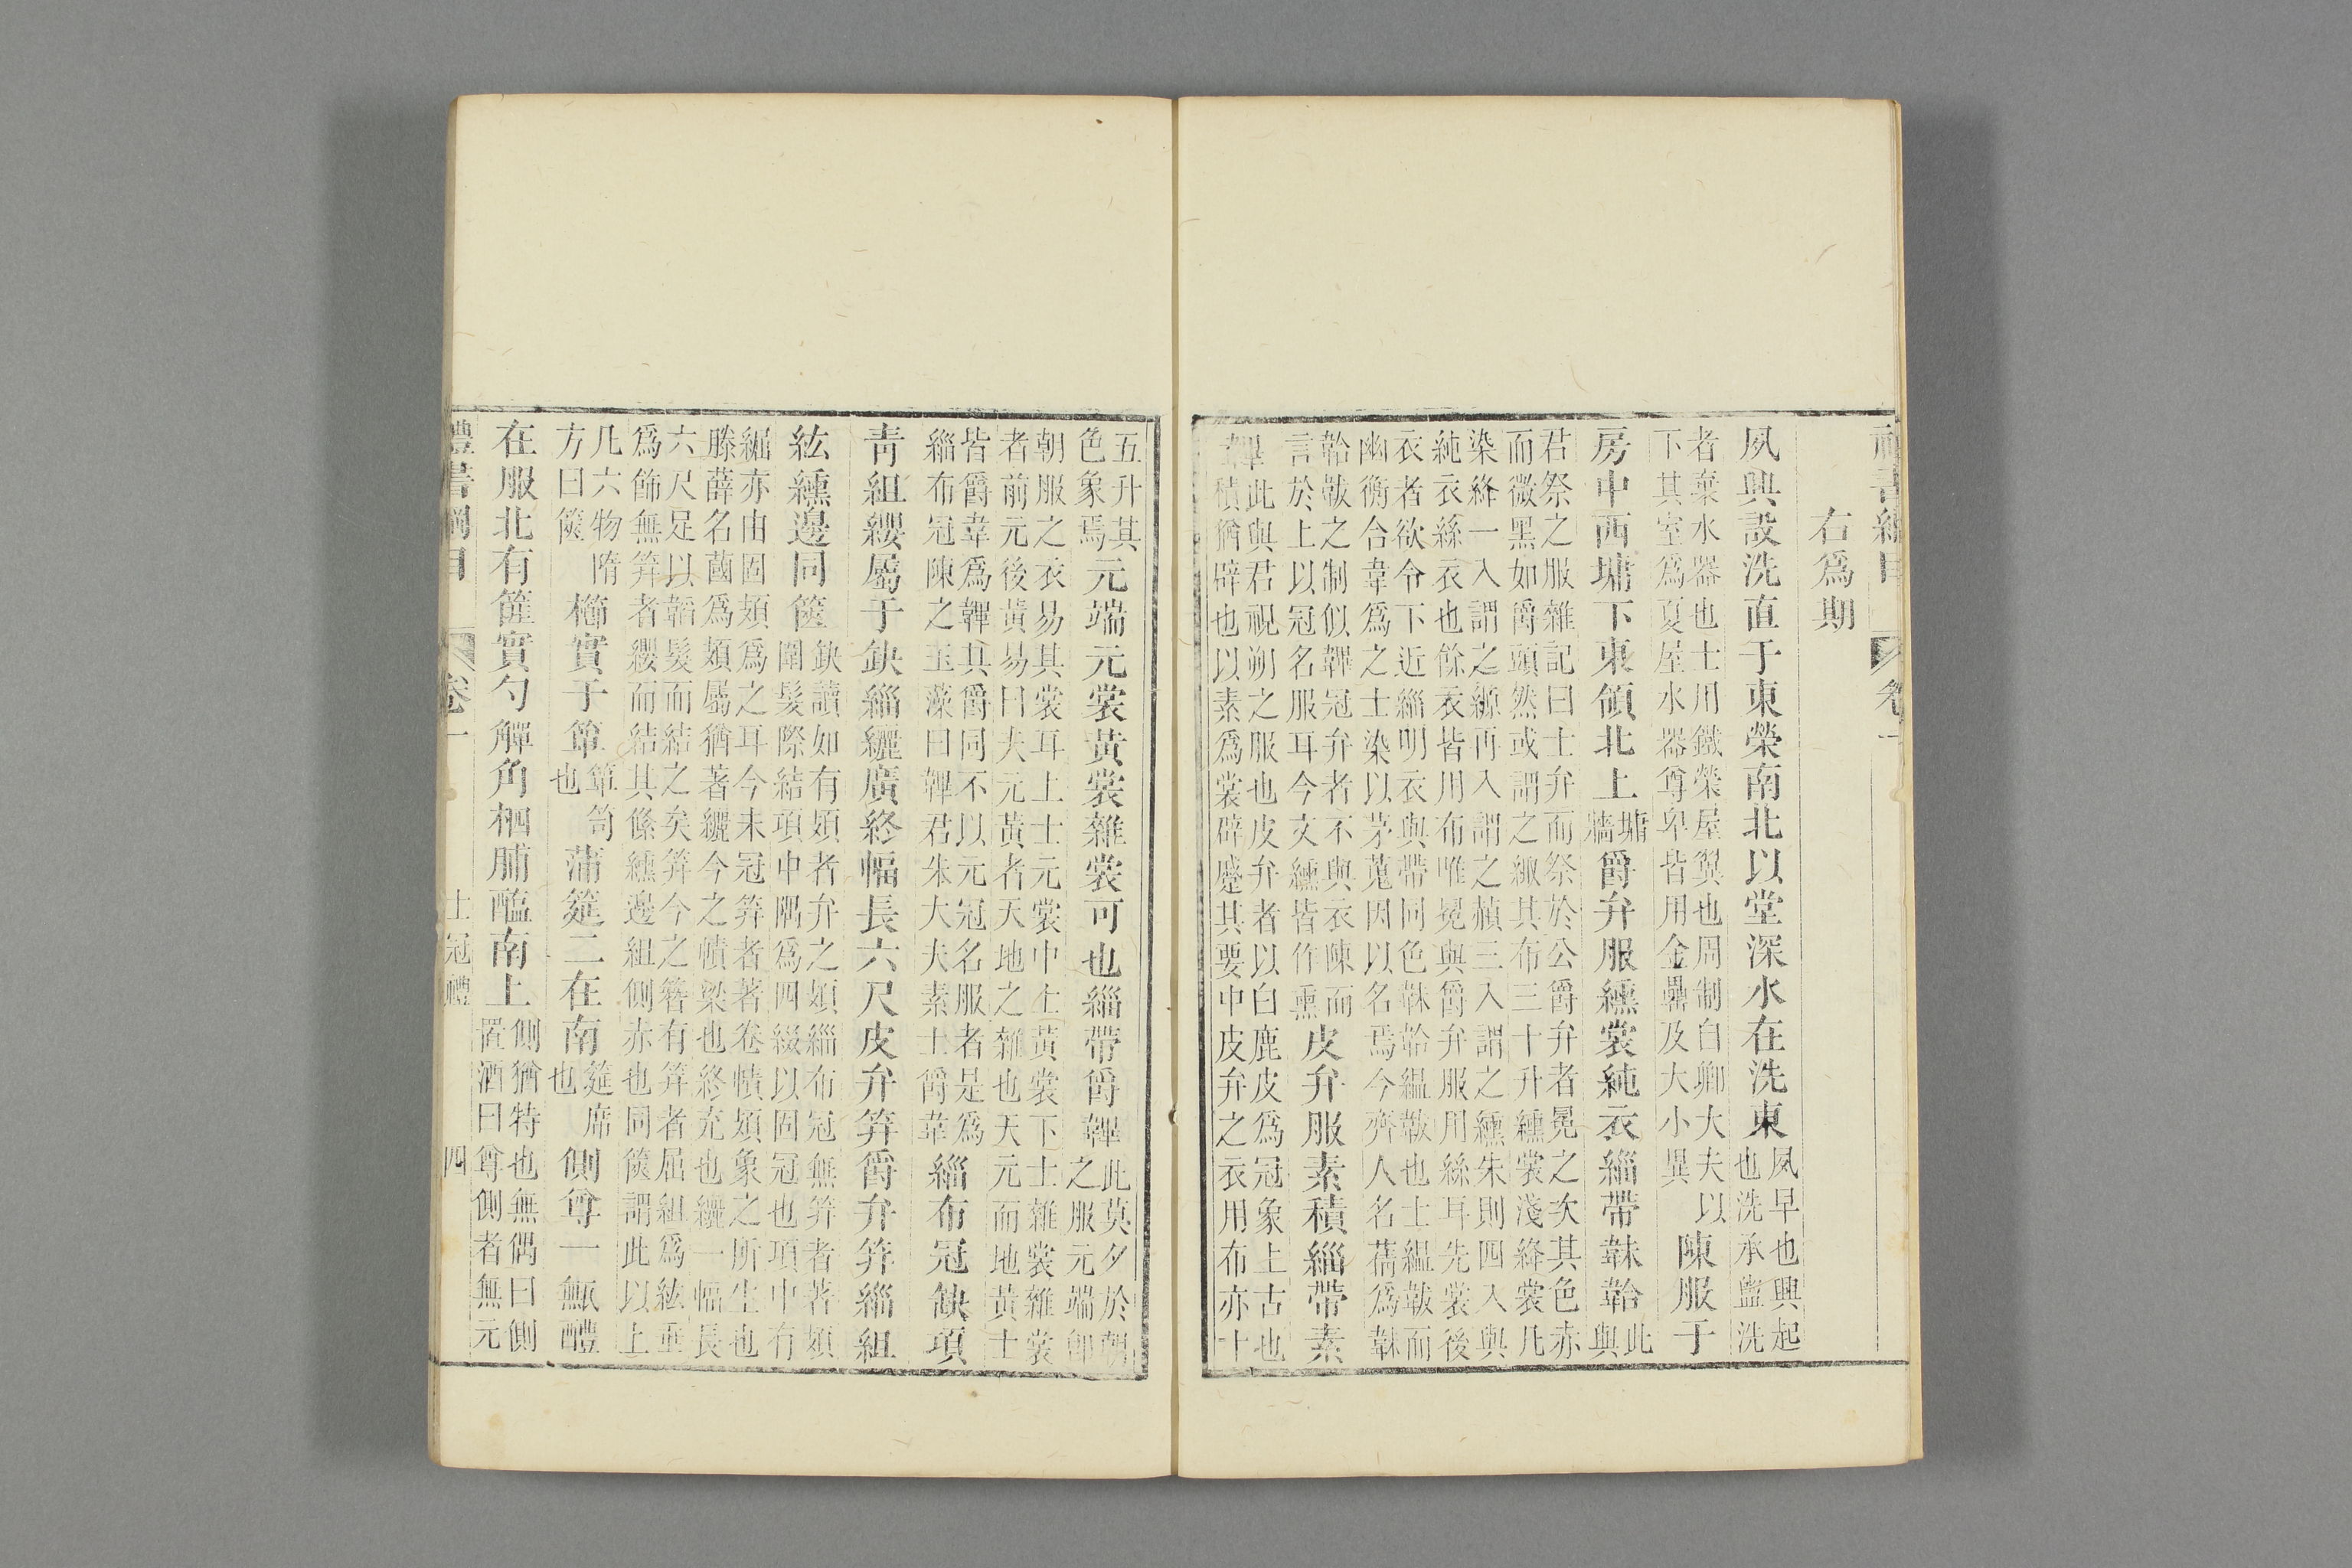 右爲期
夙興設洗直于東榮南北以堂深水在洗東夙早也興起也洗承盥洗
者棄水器也士用鐵榮屋翼也周制自卿大夫以下其室爲夏屋水器尊卑皆用金罍及大小異陳服于
房中西墉下東領北上墉牆爵弁服纁裳純衣緇帶韎韐此與
君祭之服雜記曰士弁而祭於公爵弁者冕之次其色赤而微黑如爵頭然或謂之緅其布三十升纁裳淺絳裳凡
染絳一入謂之縓再入謂之赬三入謂之纁朱則四入與純衣絲衣也餘衣皆用布唯冕與爵弁服用絲耳先裳後
衣者欲令下近緇明衣與帶同色韎韐縕韍也士縕韍而幽衡合韋爲之士染以茅蒐因以名焉今齊人名蒨爲韎
韐韍之制似韠冠弁者不與衣陳而言於上以冠名服耳今文纁皆作熏皮弁服素積緇帶素
韠此與君視朔之服也皮弁者以白鹿皮爲冠象上古也積猶辟也以素爲裳辟蹙其要中皮弁之衣用布亦十
五升其色象焉元端元裳黃裳雜裳可也緇帶爵韠此莫夕於朝之服元端卽
朝服之衣易其裳耳上士元裳中士黃裳下士雜裳雜裳者前元後黃易曰夫元黃者天地之雜也天元而地黃士
皆爵韋爲韠其爵同不以元冠名服者是爲緇布冠陳之玉藻曰韠君朱大夫素士爵韋緇布冠缺項
靑組纓屬于缺緇纚廣終幅長六尺皮弁笄爵弁笄緇組
紘纁邊同篋缺讀如有頍者弁之頍緇布冠無笄者著頍圍髮際結項中隅爲四綴以固冠也項中有
䋿亦由固頍爲之耳今未冠笄者著卷幘頍象之所生也滕薛名蔮爲頍屬猶著纚今之幘梁也終充也纚一幅長
六尺足以韜髮而結之矣笄今之簪有笄者屈組爲紘垂爲飾無笄者纓而結其絛纁邊組側赤也同篋謂此以上
凡六物隋方曰篋櫛實于簞簞笥也蒲筵二在南筵席也側尊一甒醴
在服北有篚實勺觶角柶脯醢南上側猶特也無偶曰側置酒曰尊側者無元
禮書綱目 卷一 士冠禮 四